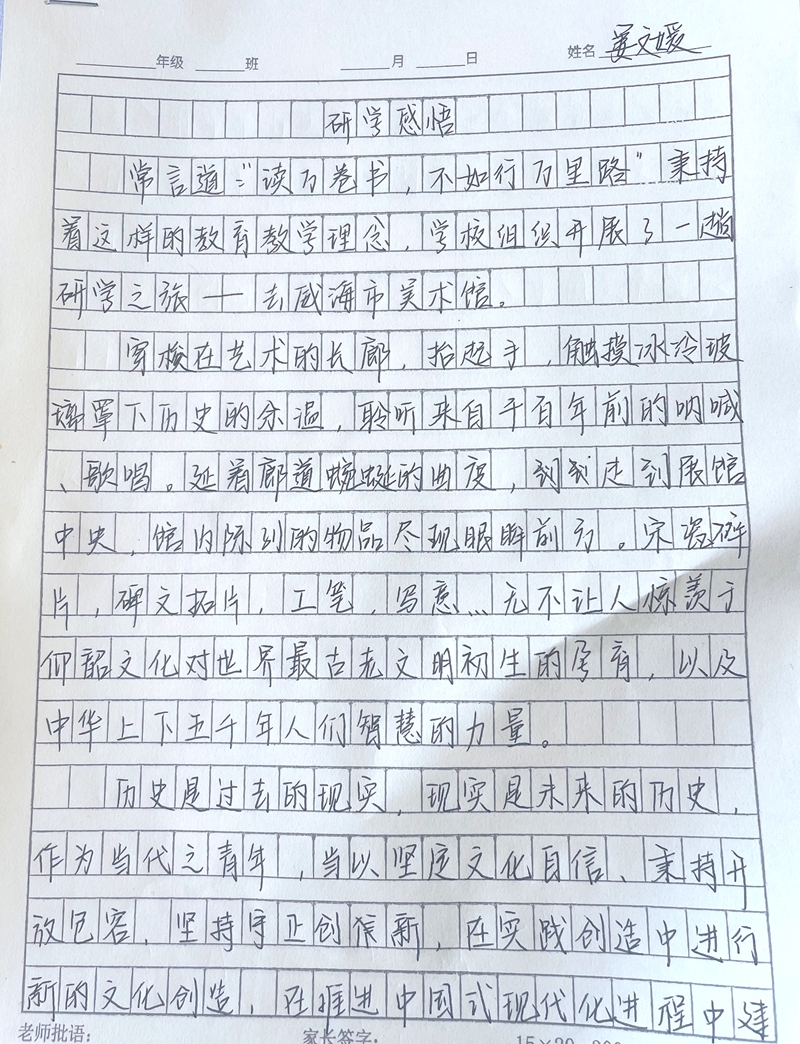 年级 班 月 日 姓名 姜文媛
研学感悟
常言道:“读万卷书,不如行万里路”秉持
着这样的教育教学理念,学校组织开展了一趟
研学之旅——去威海市美术馆。
穿梭在艺术的长廊,抬起手,触摸冰冷玻
璃罩下历史的余温,聆听来自千百年前的呐喊
、歌唱。延着廊道蜿蜒的曲度,到走到展馆
中央,馆内陈列的物品尽现眼眸前方。宋瓷碎
片,碑文拓片,工笔,写意…无不让人惊羡于
仰韶文化对世界最古老文明初生的孕育,以及
中华上下五千年人们智慧的力量。
历史是过去的现实,现实是未来的历史,
作为当代之青年,当以坚定文化自信、秉持开
放包容,坚持守正创新,在实践创造中进行
新的文化创造,在推进中国式现代化进程中建
老师批语: 家长签字: